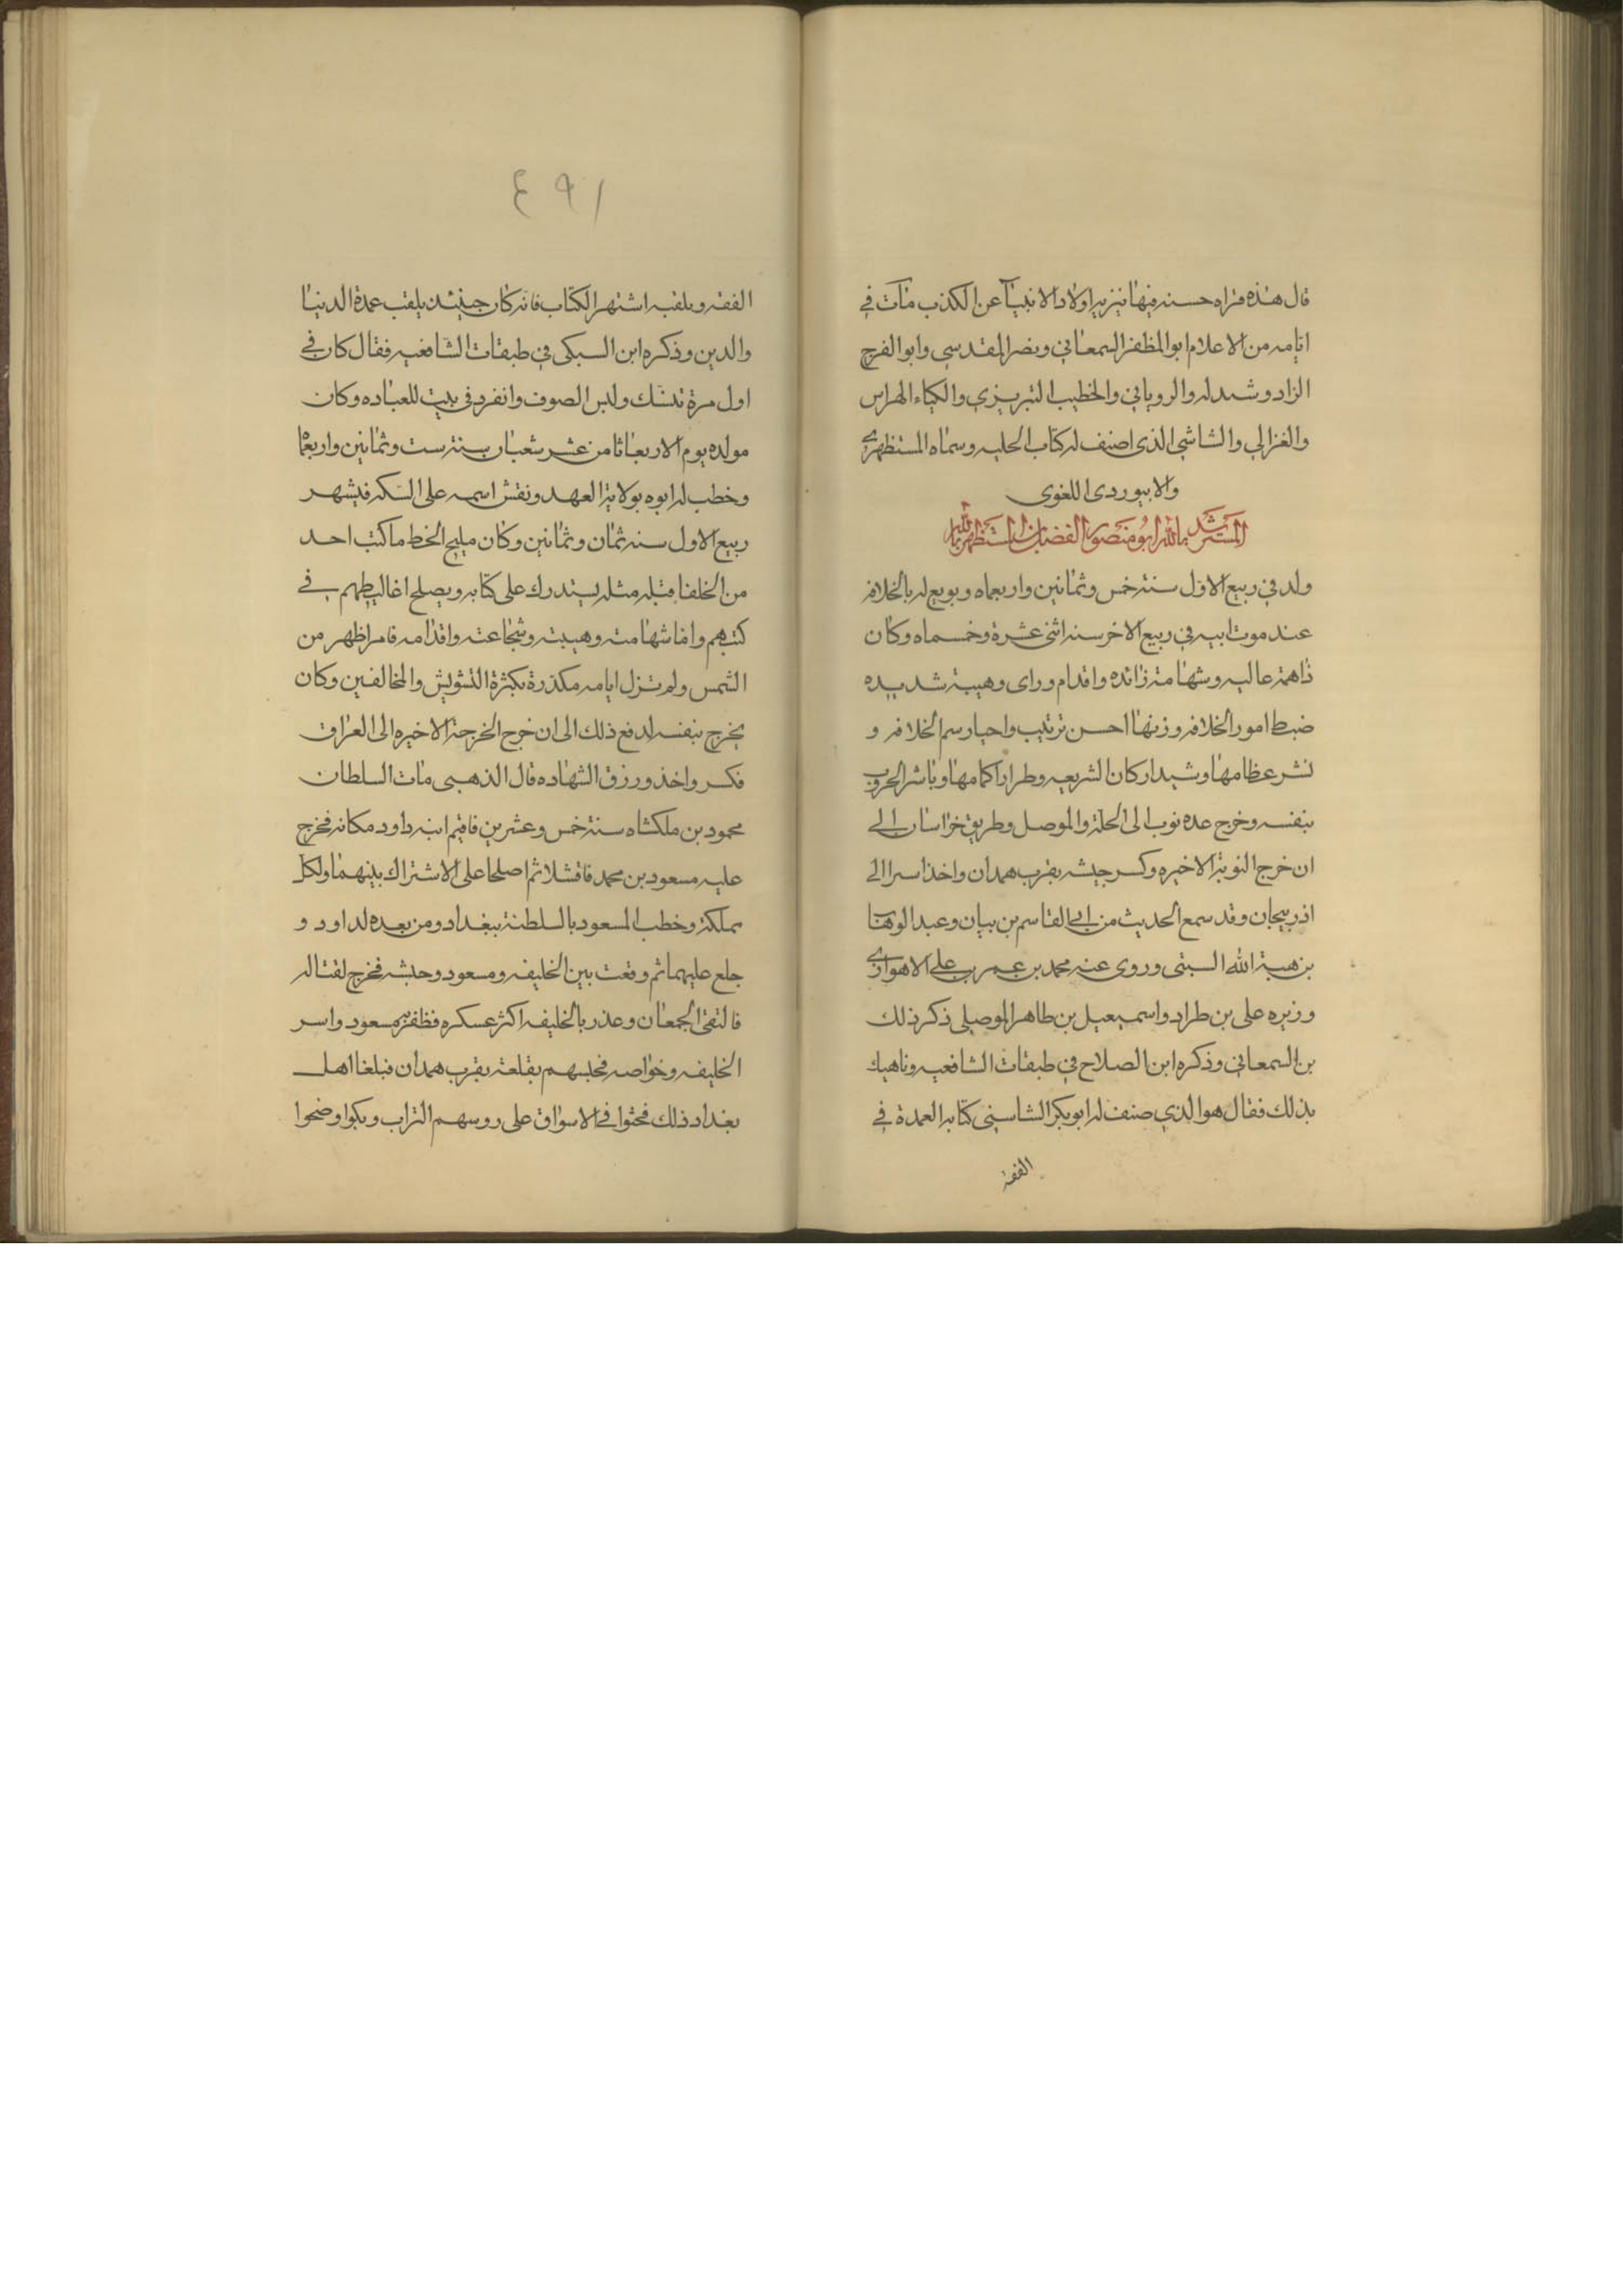 قال هذه قراه حسنه فيها تنزيه اولاد الانبيآ عن الكذب مات في
ايامه من الاعلام ابو المظفر السمعاني ونصر المقدسي وابو الفرج
الزاد وشيدله والروياني والخطيب التبريزي والكياء الهراس
والغزالي والشاشي الذي اصنف له كتاب الحليه وسماه المستظهري
والابيوردى اللغوى
المسترشد بالله ابو منصور الفضل بن المستظهر بالله
ولد في ربيع الاول سنة خمس وثمانين واربعماه وبويع له بالخلافه
عند موت ابيه في ربيع الاخر سنه اثنى عشرة وخمسماه وكان
ذا همة عاليه وشهامة زائده واقدام وراى وهيبة شديده
ضبط امور الخلافه ورتبها احسن ترتيب واحيا رسم الخلافه و
نشر عظامها وشيد اركان الشريعه وطرز اكمامها وباشر الحروب
بنفسه وخرج عده نوب الى الحلة والموصل وطريق خراسان الى
ان خرج النوبة الاخيره وكسر جيشه بقرب همدان واخذ اسرا الى
اذربيجان وقد سمع الحديث من ابي القاسم بن بيان وعبد الوهاب
بن هبة الله السبتى وروى عنه محمد بن عمر بن على الاهوازي
وزيره على بن طراد واسمعيل بن طاهر الموصلى ذكر ذلك
بن السمعاني وذكره ابن الصلاح في طبقات الشافعيه وناهيك
بذلك فقال هو الذي صنف له ابو بكر الشاسنى كتابه العمدة في
الفقه
٤٩١
الفقه وبلقبه اشتهر الكتاب فانه كان حينئذ يلقب عمدة الدنيا
والدين وذكره ابن السبكى في طبقات الشافعيه فقال كان في
اول مرة تنسك ولبس الصوف وانفرد في بيت للعباده وكان
مولده يوم الاربعا ثامن عشر شعبان سنة ست وثمانين واربعماه
وخطب له ابوه بولاية العهد ونقش اسمه على السكه في شهر
ربيع الاول سنه ثمان وثمانين وكان مليح الخط ما كتب احد
من الخلفا قبله مثله يستدرك على كتابه ويصلح اغاليطهم في
كتبهم واما شهامته وهيبته وشجاعته واقدامه فامر اظهر من
الشمس ولم تزل ايامه مكدرة بكثرة التشويش والمخالفين وكان
يخرج بنفسه لدفع ذلك الى ان خرج الخرجة الاخيره الى العراق
فكسر واخذ ورزق الشهاده قال الذهبى مات السلطان
محمود بن ملكشاه سنة خمس وعشرين فاقيم ابنه داود مكانه فخرج
عليه مسعود بن محمد فاقتتلا ثم اصلحا على الاشتراك بينهما ولكل
مملكة وخطب المسعود بالسلطنة ببغداد ومن بعده لداود و
خلع عليهما ثم وقعت بين الخليفه ومسعود وحشه فخرج لقتاله
فالتقى الجمعان وغدر بالخليفه اكثر عسكره فظفر به مسعود واسر
الخليفه وخواصه فحبسهم بقلعة بقرب همدان فبلغ اهل
بغداد ذلك فحثوا في الاسواق على روسهم التراب وبكوا وضجوا